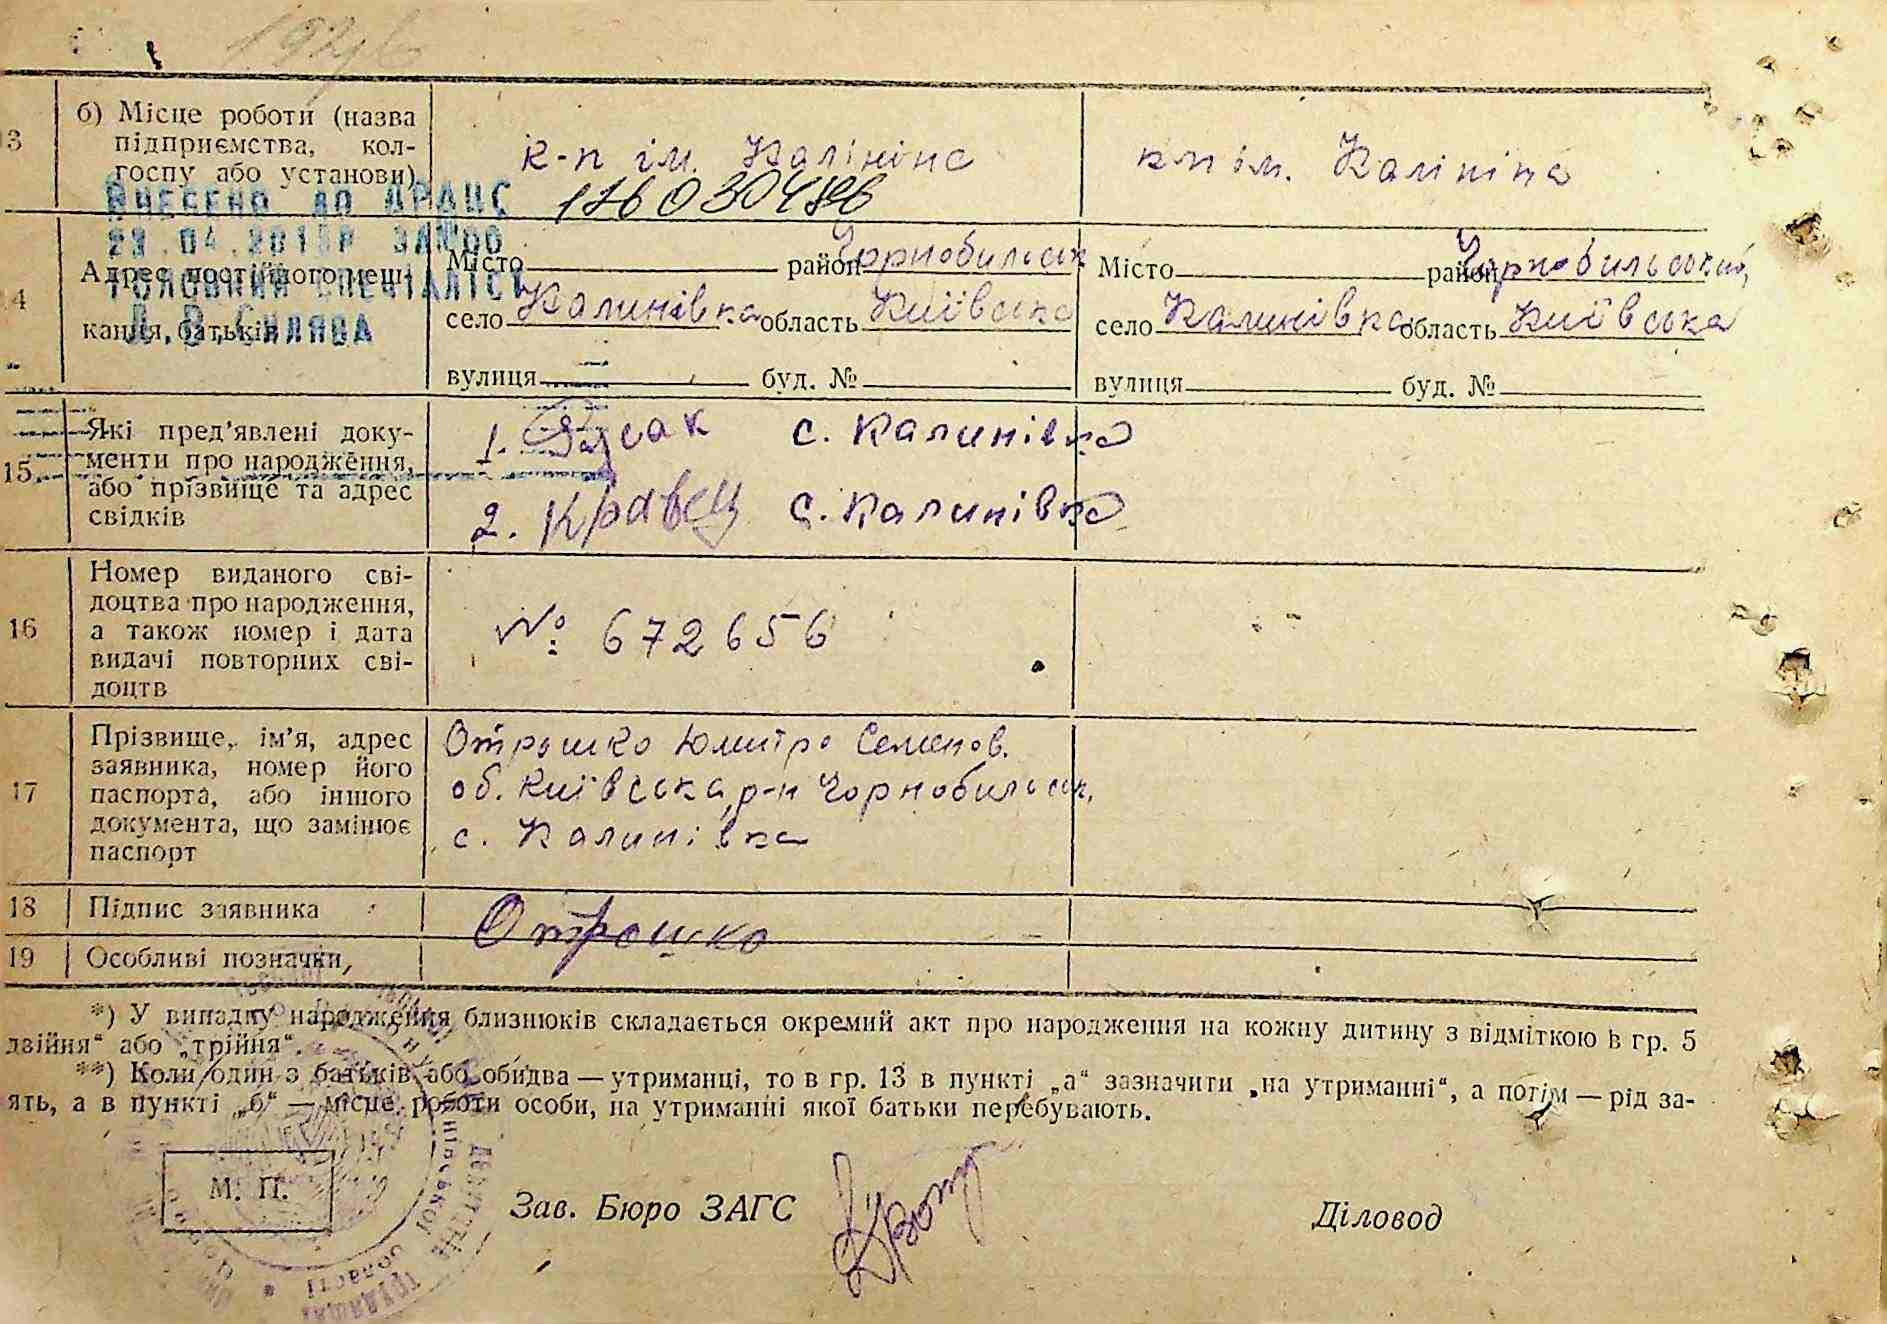 13
б) Місце роботи (назва
підприємства, кол-
госпу або установи)
к-п ім. Калініна
кп ім. Калініна
ВНЕСЕНО ДО ДРАЦС
176030486
14
Адрес постійного меш-
кання батьків
ГОЛОВНИЙ СПЕЦІАЛІСТ
Місто район Чорнобильськ
село Калинівка область Київська
вулиця буд. №
Місто район Чорнобильський,
село Калинівка область Київська
вулиця буд. №
15
Які пред'явлені доку-
менти про народження,
або прізвище та адрес
свідків
1. с. Калинівка
2. Кравец с. Калинівка
16
Номер виданого сві-
доцтва про народження,
а також номер і дата
видачі повторних сві-
доцтв
№: 672656
17
Прізвище, ім'я, адрес
заявника, номер його
паспорта, або іншого
документа, що замінює
паспорт
Отрошко Юмитро Семенов.
об. Київська, р-н Чорнобильськ,
с. Калинівка
18
Підпис заявника
Отрошко
19
Особливі позначки,
*) У випадку народження близнюків складається окремий акт про народження на кожну дитину з відміткою в гр. 5
двійня“ або „трійня“.
**) Коли один з батьків або обидва — утриманці, то в гр. 13 в пункті „а“ зазначити „на утриманні“, а потім — рід за-
ять, а в пункті „б“ — місце роботи особи, на утриманні якої батьки перебувають.
М. П.
Зав. Бюро ЗАГС
Діловод